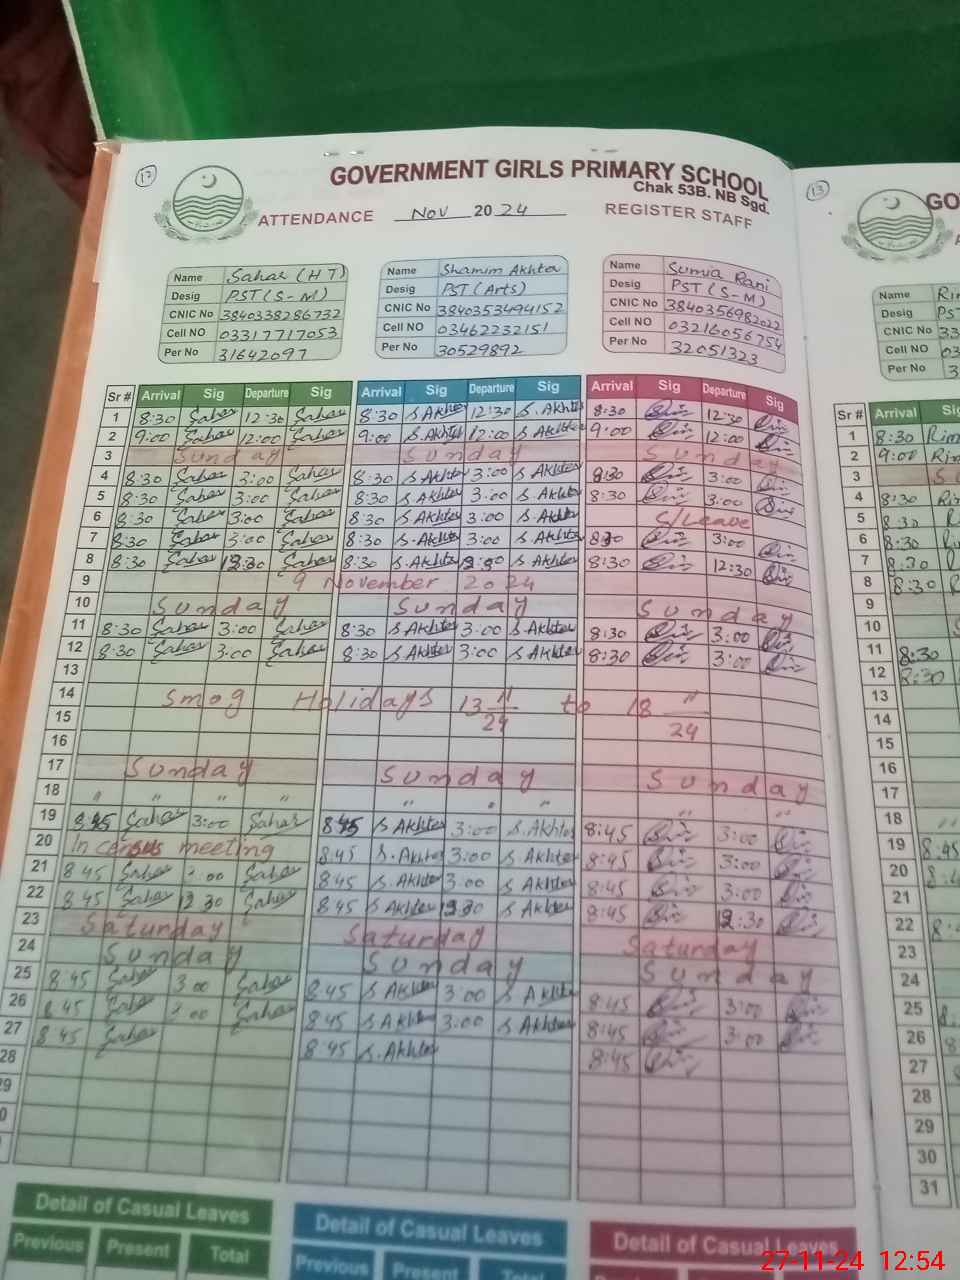 12
GOVERNMENT GIRLS PRIMARY SCHOOL
Chak 53B. NB Sgd.
ATTENDANCE Nov 2024 REGISTER STAFF
Name Sahar (HT)
Desig PST(S-M)
CNIC No 3840338286732
Cell NO 03317717053
Per No 31642097
Name Shamim Akhter
Desig PST (Arts)
CNIC No 3840353494152
Cell NO 03462232151
Per No 30529892
Name Sumia Rani
Desig PST(S-M)
CNIC No 3840356982022
Cell NO 03216056754
Per No 32051323
Sr # Arrival Sig Departure Sig Arrival Sig Departure Sig Arrival Sig Departure Sig
1 8:30 Sahar 12:30 Sahar 8:30 S.Akhter 12:30 S.Akhter 8:30 12:30
2 9:00 Sahar 12:00 Sahar 9:00 S.Akhter 12:00 S.Akhter 9:00 12:00
3 Sunday Sunday Sunday
4 8:30 Sahar 3:00 Sahar 8:30 S.Akhter 3:00 S.Akhter 8:30 3:00
5 8:30 Sahar 3:00 Sahar 8:30 S.Akhter 3:00 S.Akhter 8:30 3:00
6 8:30 Sahar 3:00 Sahar 8:30 S.Akhter 3:00 S.Akhter S/Leave
7 8:30 Sahar 3:00 Sahar 8:30 S.Akhter 3:00 S.Akhter 8:30 3:00
8 8:30 Sahar 12:30 Sahar 8:30 S.Akhter S.Akhter 8:30 12:30
9 9 November 2024
10 Sunday Sunday Sunday
11 8:30 Sahar 3:00 Sahar 8:30 S.Akhter 3:00 S.Akhter 8:30 3:00
12 8:30 Sahar 3:00 Sahar 8:30 S.Akhter 3:00 S.Akhter 8:30 3:00
13
14 Smog Holidays 13 11/24 to 18 "/24
15
16
17 Sunday Sunday Sunday
18 " " " " " " " " "
19 8:45 Sahar 3:00 Sahar 8:45 S.Akhter 3:00 S.Akhter 8:45 3:00
20 In census meeting 8:45 S.Akhter 3:00 S.Akhter 8:45 3:00
21 8:45 Sahar 3:00 Sahar 8:45 S.Akhter 3:00 S.Akhter 8:45 3:00
22 8:45 Sahar 12:30 Sahar 8:45 S.Akhter 12:30 S.Akhter 8:45 12:30
23 Saturday Saturday Saturday
24 Sunday Sunday Sunday
25 8:45 Sahar 3:00 Sahar 8:45 S.Akhter 3:00 S.Akhter 8:45 3:00
26 8:45 Sahar 3:00 Sahar 8:45 S.Akhter 3:00 S.Akhter 8:45 3:00
27 8:45 Sahar 8:45 S.Akhter 8:45
28
29
Detail of Casual Leaves Detail of Casual Leaves Detail of Casual Leaves
Previous Present Total Previous Present Total
13
GO
Name
Desig
CNIC No
Cell NO
Per No
Sr # Arrival
1 8:30
2 9:00
3
4 8:30
5 8:30
6 8:30
7 8:30
8 8:30
9
10
11 8:30
12 8:30
13
14
15
16
17
18 "
19 8:45
20
21
22
23
24
25
26
27
28
29
30
31
27-11-24 12:54